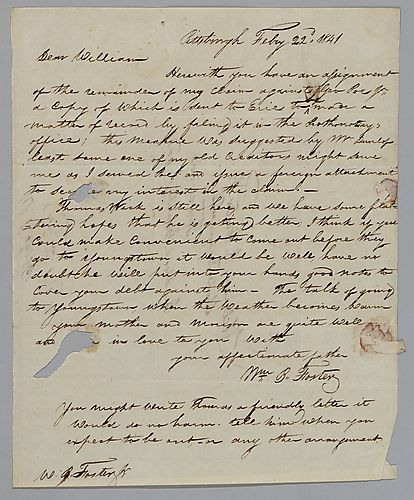 Pittsburgh Feby 22d 1841
Dear William
Herewith you have an assignment
of the remainder of my claim against
a Copy of which is sent to Erie to be made a
matter of record by filing it in the Prothonotary
office; this measure was suggested by Mr
least some one of my old Creditors might serve
me as I served and issue a foreign attachment
to secure my interest in the claim.
Thomas is still here and we have some flat-
tering hopes that he is getting better, I think if you
Could make Convenient to Come out before they
go to Youngstown it would be well have no
doubt he will put into your hands good notes to
Cover your debt against him - The talk of going
to Youngstown when the Weather becomes warm
Your Mother and Morison are quite well
and in love to you with
your affectionate father
Wm B. Foster
You might write Thomas a friendly letter it
would do no harm. tell him when you
expect to be out - or any other arrangement
W. B Foster Jr